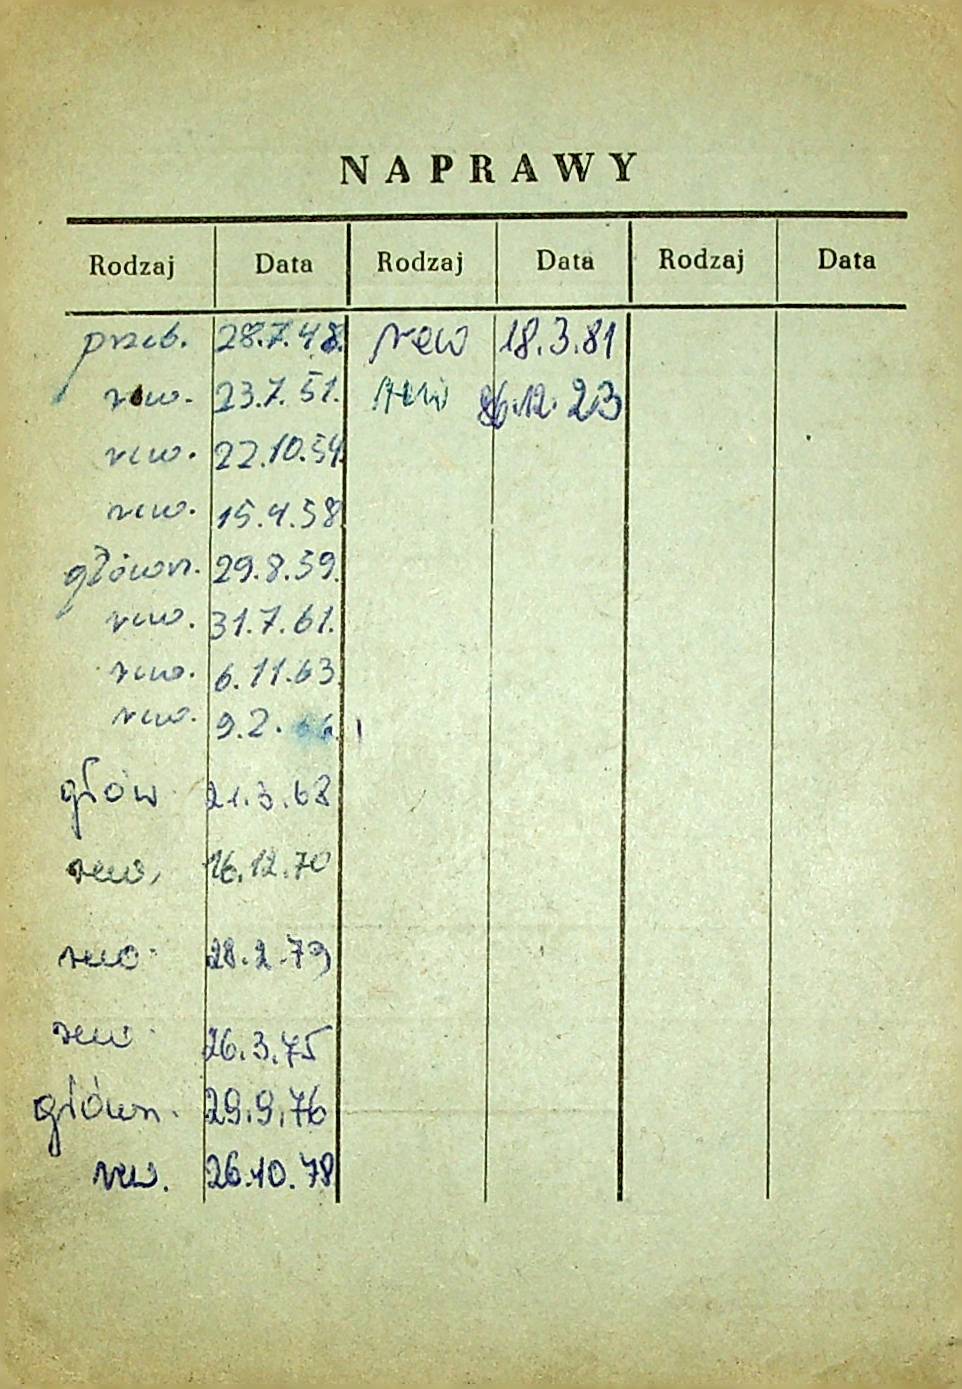 NAPRAWY
Rodzaj Data Rodzaj Data Rodzaj Data
przeb. 28.7.48. rew 18.3.81
rew. 23.7.51. 12. 23
rew. 22.10.54.
rew. 15.4.58
główn. 29.8.59.
rew. 31.7.61.
rew. 6.11.63.
rew. 9.2.66.
głów 21.3.68
rew. 16.12.70
rew. 28.2.79
rew. 26.3.75
główn. 29.9.76
rew. 26.10.78